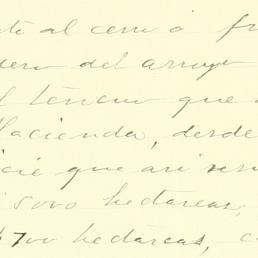 te al cerro ó fr
dero del arroyo
l terreno que
Hacienda, desde
cie que así
5000 hectareas;
4700 hectareas, c